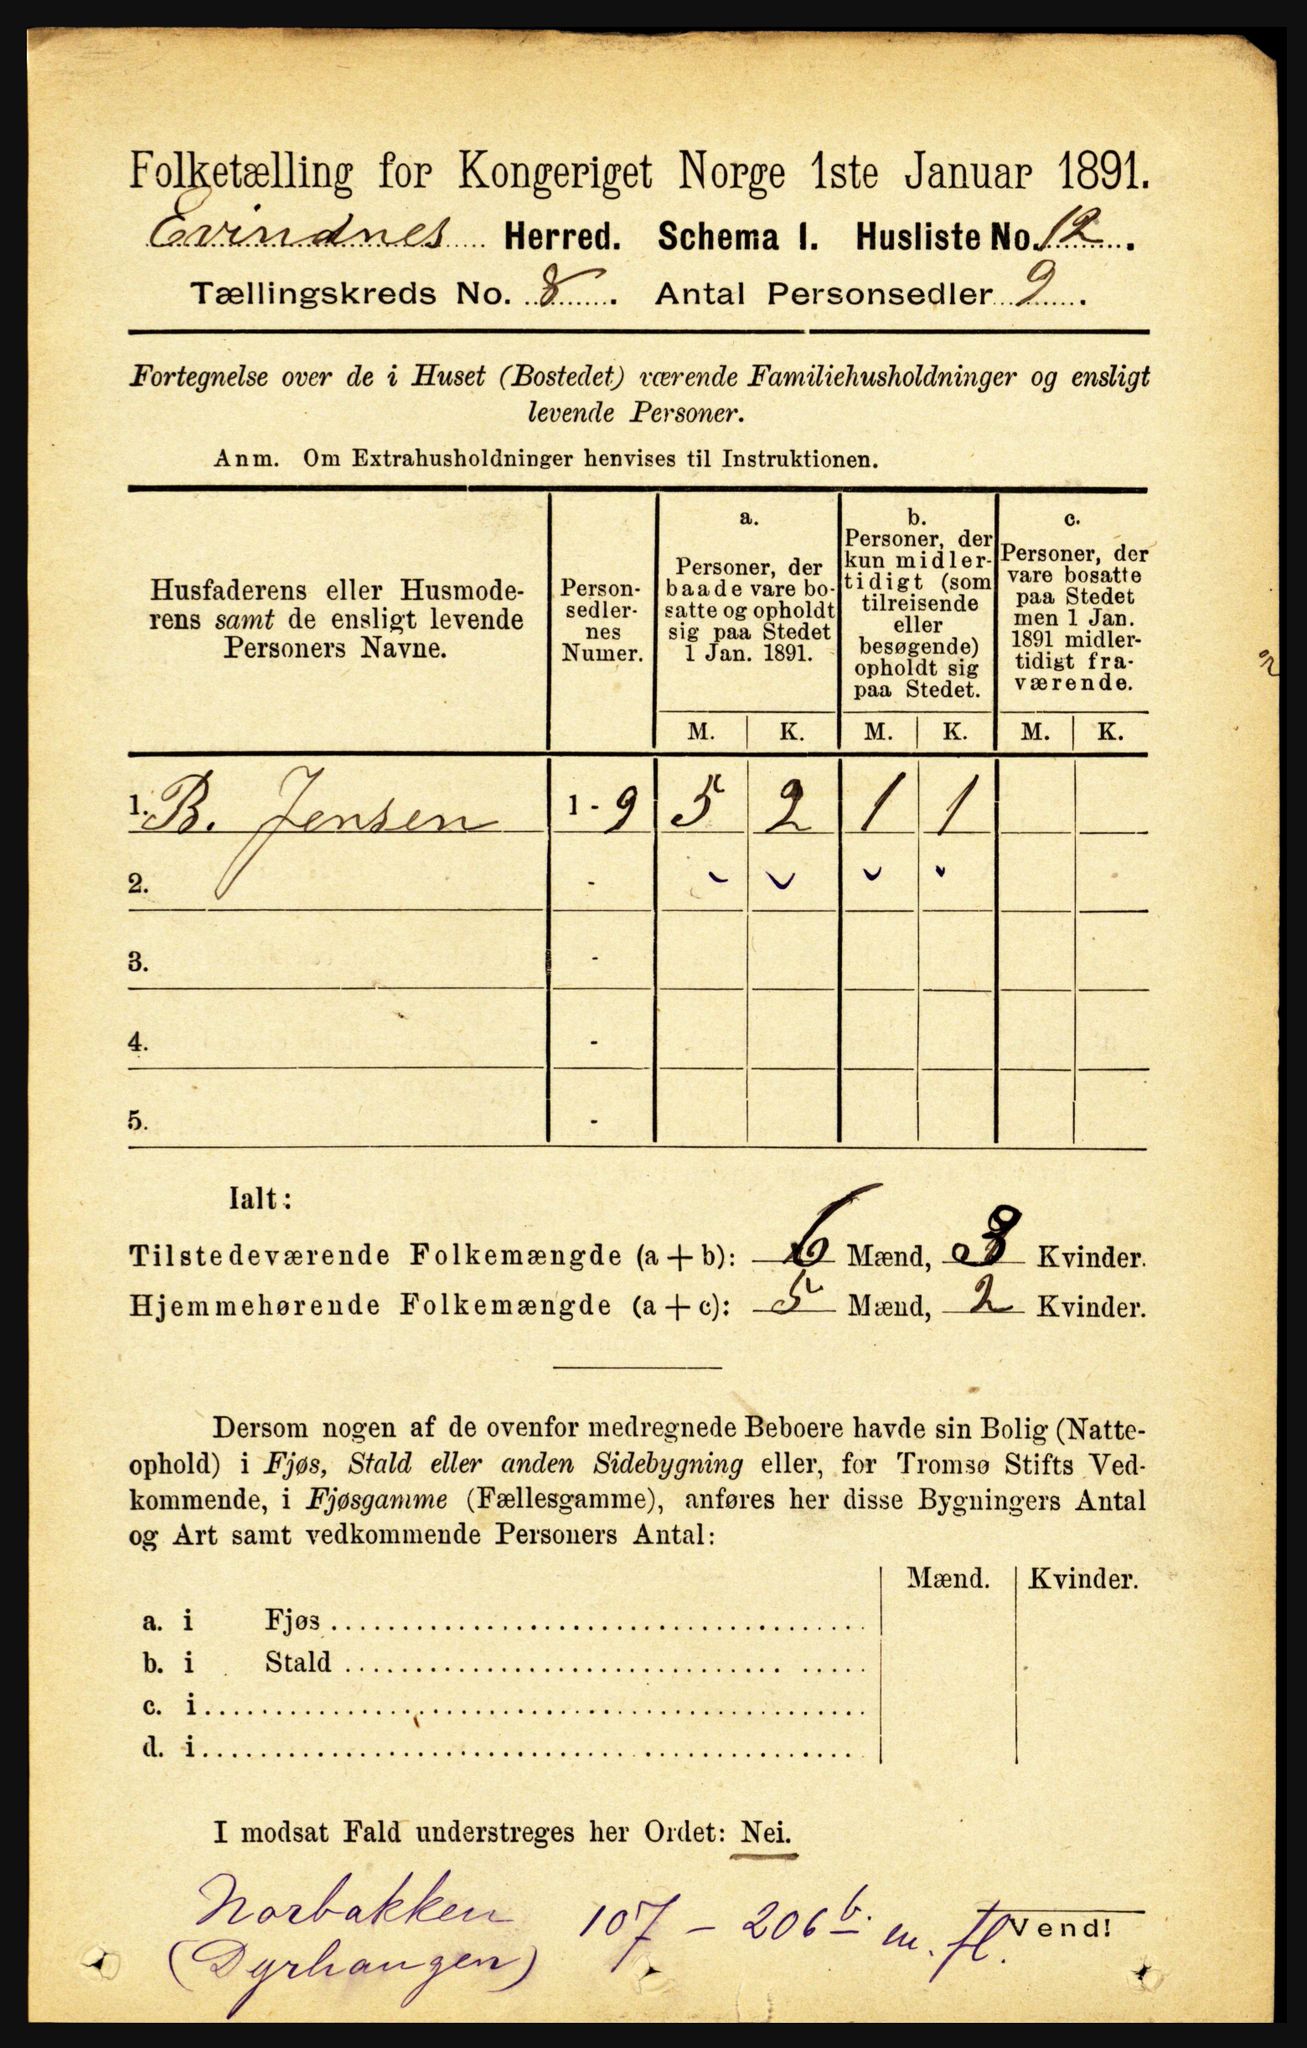 Folketælling for Kongeriget Norge 1ste Januar 1891.
Evindnes Herred. Schema I. Husliste No. 12.
Tællingskreds No. 8. Antal Personsedler 9.
Fortegnelse over de i Huset (Bostedet) værende Familiehusholdninger og ensligt
levende Personer.
Anm. Om Extrahusholdninger henvises til Instruktionen.
Husfaderens eller Husmode-
rens samt de ensligt levende
Personers Navne.
Person-
sedler-
nes
Numer.
a.
Personer, der
baade vare bo-
satte og opholdt
sig paa Stedet
1 Jan. 1891.
b.
Personer, der
kun midler-
tidigt (som
tilreisende
eller
besøgende)
opholdt sig
paa Stedet.
c.
Personer, der
vare bosatte
paa Stedet
men 1 Jan.
1891 midler-
tidigt fra-
værende.
M. K. M. K. M. K.
1. B. Jensen 1 - 9 5 2 1 1
2. -
3. -
4. -
5. -
Ialt:
Tilstedeværende Folkemængde (a + b): 6 Mænd, 3 Kvinder.
Hjemmehørende Folkemængde (a + c): 5 Mænd, 2 Kvinder.
Dersom nogen af de ovenfor medregnede Beboere havde sin Bolig (Natte-
ophold) i Fjøs, Stald eller anden Sidebygning eller, for Tromsø Stifts Ved-
kommende, i Fjøsgamme (Fællesgamme), anføres her disse Bygningers Antal
og Art samt vedkommende Personers Antal:
Mænd. Kvinder.
a. i Fjøs
b. i Stald
c. i
d. i
I modsat Fald understreges her Ordet: Nei.
Norbakken 107 - 206 b. m. fl. Vend!
(Dyrhaugen)